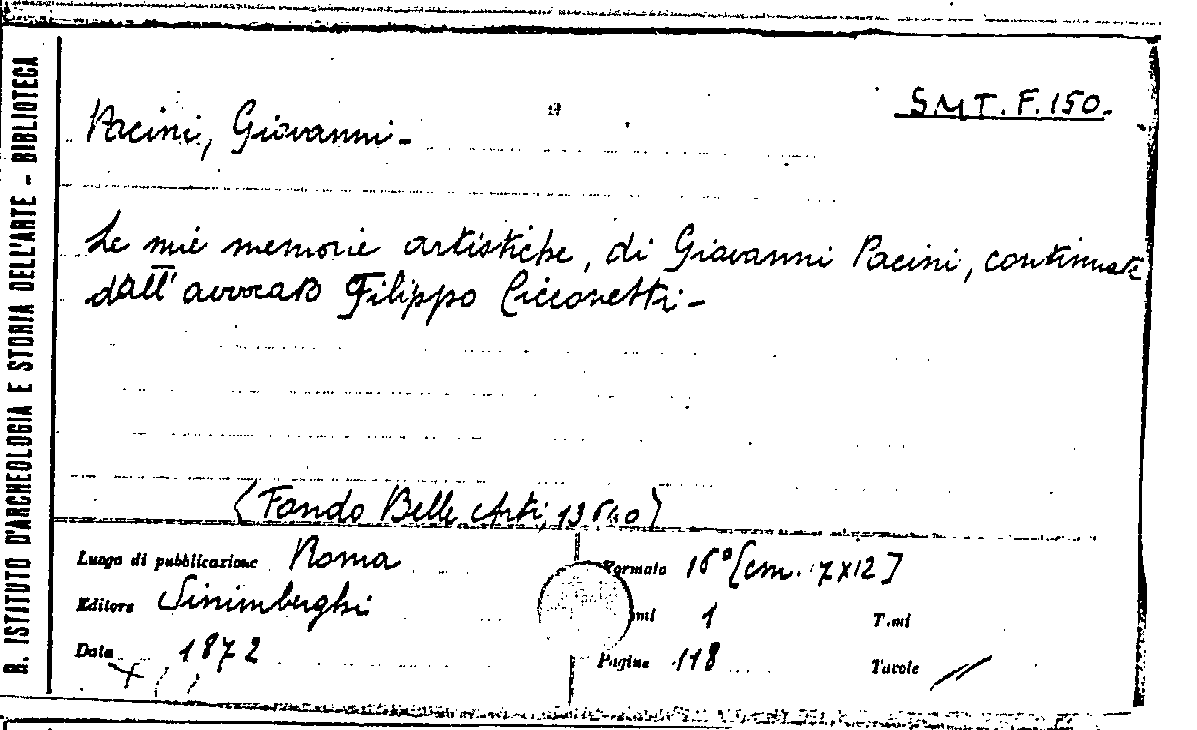 R. ISTITUTO D'ARCHEOLOGIA E STORIA DELL'ARTE - BIBLIOTECA
S.M T. F. 150.
Pacini, Giovanni -
Le mie memorie artistiche, di Giovanni Pacini, continuate
dall'avvocato Filippo Cicconetti -
(Fondo Belle Arti, 13640)
Luogo di pubblicazione Roma
Formato 16° [cm. 7x12]
Editore Sinimberghi
1
T.mi
Data 1872
Pagine 118
Tavole